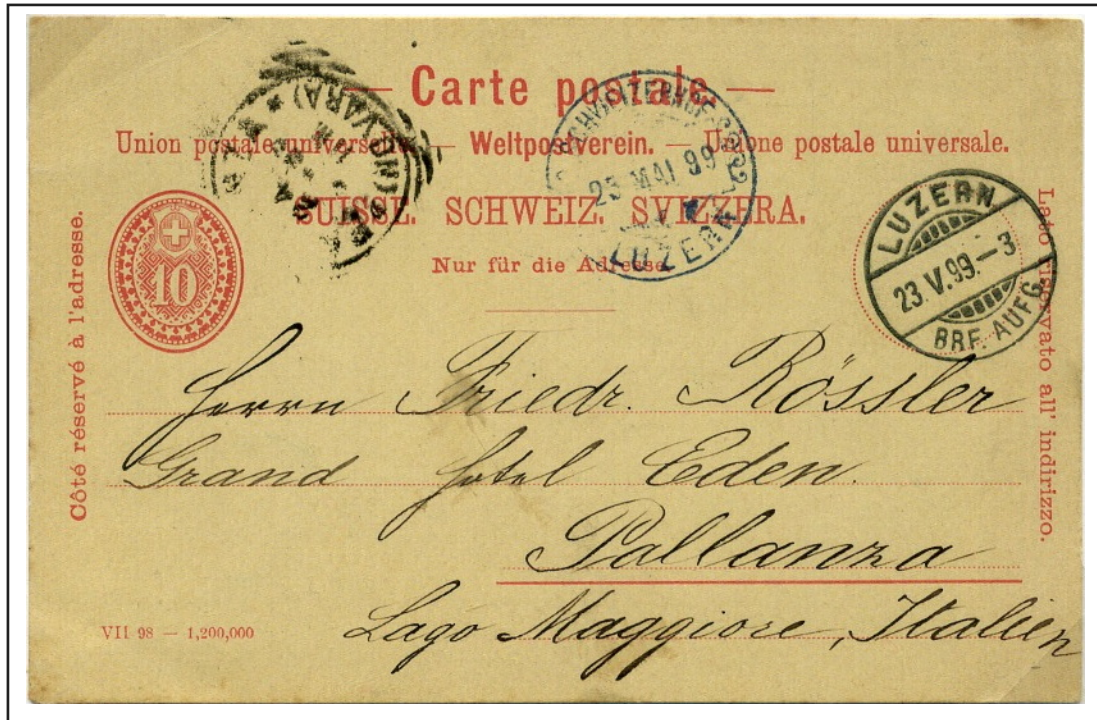 — Carte postale. —
Union postale universelle. — Weltpostverein. — Unione postale universale.
SUISSE. SCHWEIZ. SVIZZERA.
Nur für die Adresse.
Côté réservé à l'adresse.
Lato riservato all' indirizzo.
10
23 MAI 99
LUZERN
LUZERN
23.V.99.–3
BRF. AUFG.
Herrn Friedr. Rössler
Grand Hotel Eden.
Pallanza
Lago Maggiore, Italien
VII 98 — 1,200,000